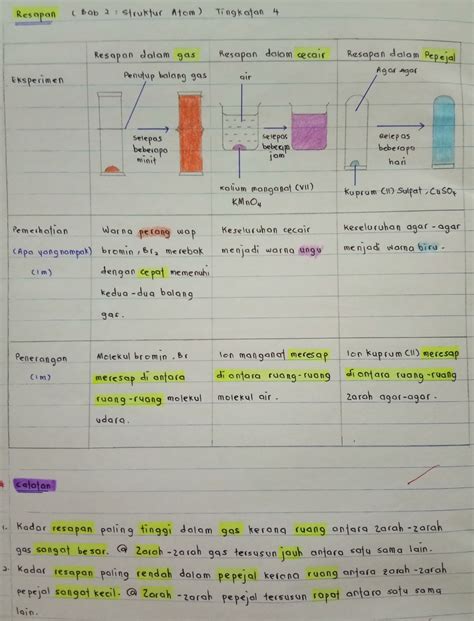 Resapan ( Bab 2 : Struktur Atom ) Tingkatan 4
Resapan dalam gas
Resapan dalam cecair
Resapan dalam Pepejal
Eksperimen
Penutup balang gas
selepas
beberapa
minit
air
selepas
beberapa
jam
Kalium manganat (VII)
KMnO4
Agar Agar
selepas
beberapa
hari
Kuprum (II) Sulfat, CuSO4
Pemerhatian
(Apa yang nampak)
(1m)
Warna perang wap
bromin, Br2 merebak
dengan cepat memenuhi
kedua-dua balang
gas.
Keseluruhan cecair
menjadi warna ungu
Keseluruhan agar-agar
menjadi warna biru.
Penerangan
(1m)
Molekul bromin, Br
meresap di antara
ruang-ruang molekul
udara.
Ion manganat meresap
di antara ruang-ruang
molekul air.
Ion Kuprum (II) meresap
di antara ruang-ruang
zarah agar-agar.
Catatan
1. Kadar resapan paling tinggi dalam gas kerana ruang antara zarah-zarah
gas sangat besar. @ Zarah-zarah gas tersusun jauh antara satu sama lain.
2. Kadar resapan paling rendah dalam pepejal kerana ruang antara zarah-zarah
pepejal sangat kecil. @ Zarah-zarah pepejal tersusun rapat antara satu sama
lain.